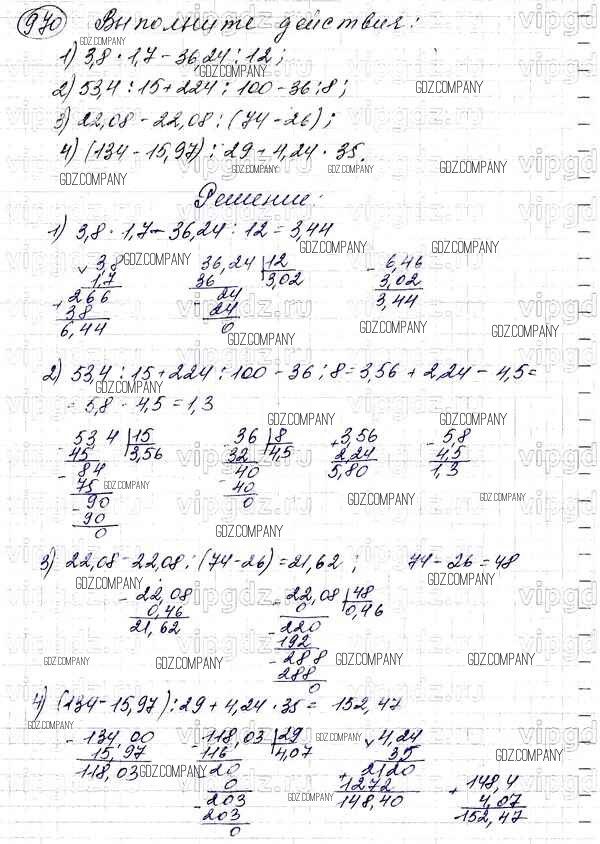 970 Выполните действия:
1) 3,8 · 1,7 - 36,24 : 12;
2) 53,4 : 15 + 224 : 100 - 36 : 8;
3) 22,08 - 22,08 : (74 - 26);
4) (134 - 15,97) : 29 + 4,24 · 35.
Решение:
1) 3,8 · 1,7 - 36,24 : 12 = 3,44
3,8 36,24 | 12 - 6,46
1,7 36 3,02 3,02
+ 266 - 24 3,44
38 24
6,44 0
2) 53,4 : 15 + 224 : 100 - 36 : 8 = 3,56 + 2,24 - 4,5 =
= 5,8 - 4,5 = 1,3
- 53 4 | 15 - 36 | 8 + 3,56 - 5,8
45 3,56 32 4,5 2,24 4,5
- 84 - 40 5,80 1,3
75 40
- 90 0
90
0
3) 22,08 - 22,08 : (74 - 26) = 21,62 ; 74 - 26 = 48
- 22,08 - 22,08 | 48
0,46 0 0,46
21,62 - 220
192
- 288
288
0
4) (134 - 15,97) : 29 + 4,24 · 35 = 152,47
- 134,00 - 118,03 | 29 4,24
15,97 116 4,07 35
118,03 20 + 2120 + 148,4
0 1272 4,07
- 203 148,40 152,47
203
0
GDZ.COMPANY
vipgdz.ru